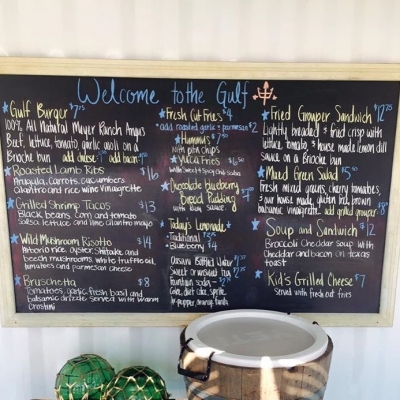 Welcome to the Gulf
Gulf Burger $7.75
100% All Natural Meyer Ranch Angus
Beef, lettuce, tomato, garlic aioli on a
Brioche bun add cheese add bacon
Roasted Lamb Ribs $16
Arugula, carrots, cucumbers
cilantro and rice wine vinaigrette
Grilled Shrimp Tacos $13
Black beans, corn and tomato
Salsa, lettuce and lime cilantro mayo
Wild Mushroom Risotto $14
Arborio rice, oyster, shitake and
beech mushrooms, white truffle oil,
tomatoes and parmesan cheese
Bruschetta $8
Tomatoes, garlic, fresh basil and
balsamic drizzle served with warm
Crostini
Fresh Cut Fries $4
* add roasted garlic & parmesan $2
Hummus $7.50
with Pita Chips
Yuca Fries $6.50
with Sweet & Spicy Chili Sauce
Chocolate blueberry
Bread Pudding $7
with Rum Sauce
Today's Lemonade
Traditional
Blueberry $4
Dasani Bottled Water
Sweet or unsweet Tea
fountain soda
Coke, diet coke, sprite,
dr. pepper, orange fanta
Fried Grouper Sandwich $12.75
Lightly breaded & fried crisp with
lettuce, tomato & house made lemon dill
sauce on a Brioche bun
Mixed Green Salad $5.50
Fresh mixed greens, cherry tomatoes,
& our house made gluten free brown
balsamic vinaigrette add grilled grouper $8
Soup and Sandwich $12
Broccoli Cheddar Soup with
Cheddar and bacon on texas
toast
Kid's Grilled Cheese $7
Served with fresh cut fries